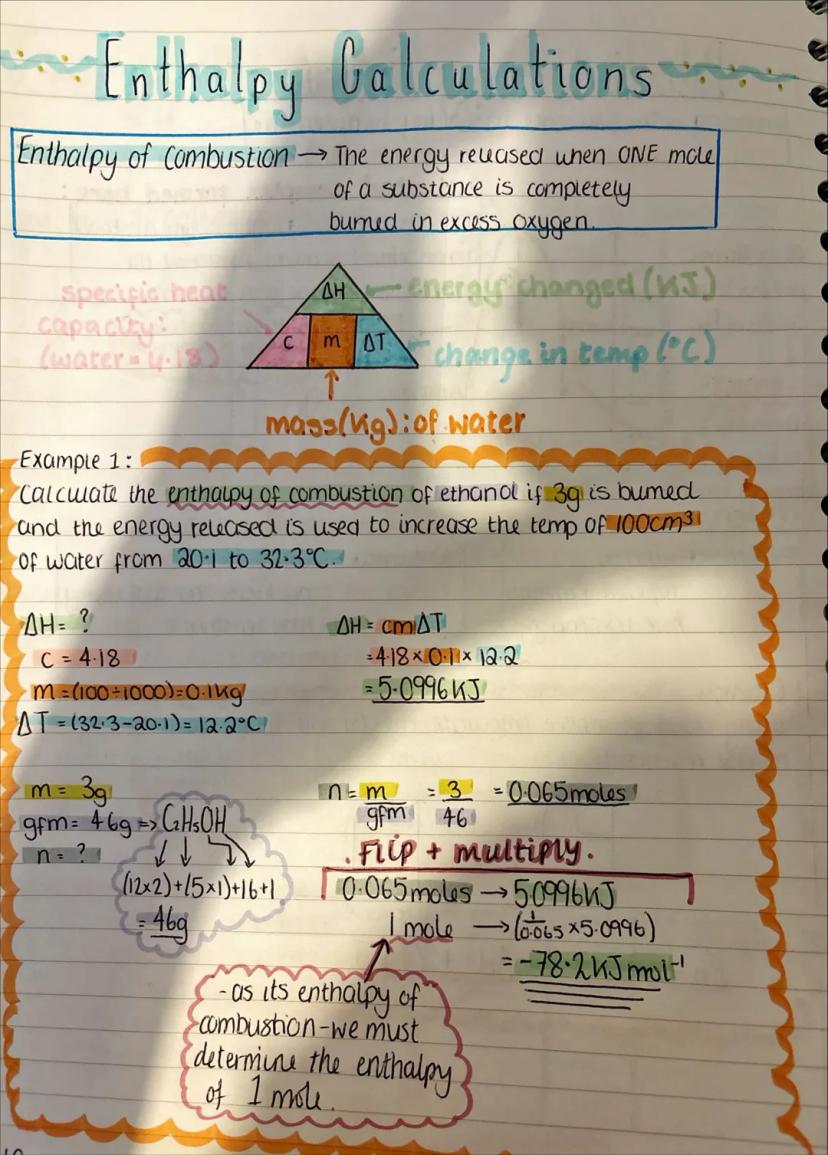 Enthalpy Calculations
Enthalpy of Combustion → The energy released when ONE mole
of a substance is completely
burned in excess oxygen.
ΔH ← energy changed (KJ)
specific heat
capacity:
(water = 4.18)
c m ΔT
change in temp (°C)
mass(Kg): of water
Example 1:
Calculate the enthalpy of combustion of ethanol if 3g is burned
and the energy released is used to increase the temp of 100cm³
of water from 20.1 to 32.3°C.
ΔH = ?
c = 4.18
m = (100÷1000) = 0.1Kg
ΔT = (32.3-20.1) = 12.2°C
ΔH = cmΔT
= 4.18 × 0.1 × 12.2
= 5.0996KJ
m = 3g
gfm = 46g => C₂H₅OH
n = ?
(12×2)+(5×1)+16+1
= 46g
n = m/gfm = 3/46 = 0.065moles
. Flip + multiply .
0.065moles → 5.0996KJ
1 mole → (1/0.065 × 5.0996)
= -78.2KJmol⁻¹
- as its enthalpy of
combustion - we must
determine the enthalpy
of 1 mole.